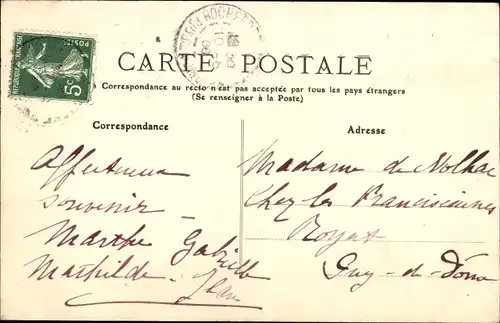 REPUBLIQUE FRANÇAISE
5c
CARTE POSTALE
Correspondance au recto n'est pas acceptée par tous les pays étrangers
(Se renseigner à la Poste)
Correspondance
Affectueux
souvenir
Marthe Gabrielle
Mathilde Jean
Adresse
Madame de Nolhac
Chez les Franciscaines
Royat
Puy-de-Dôme